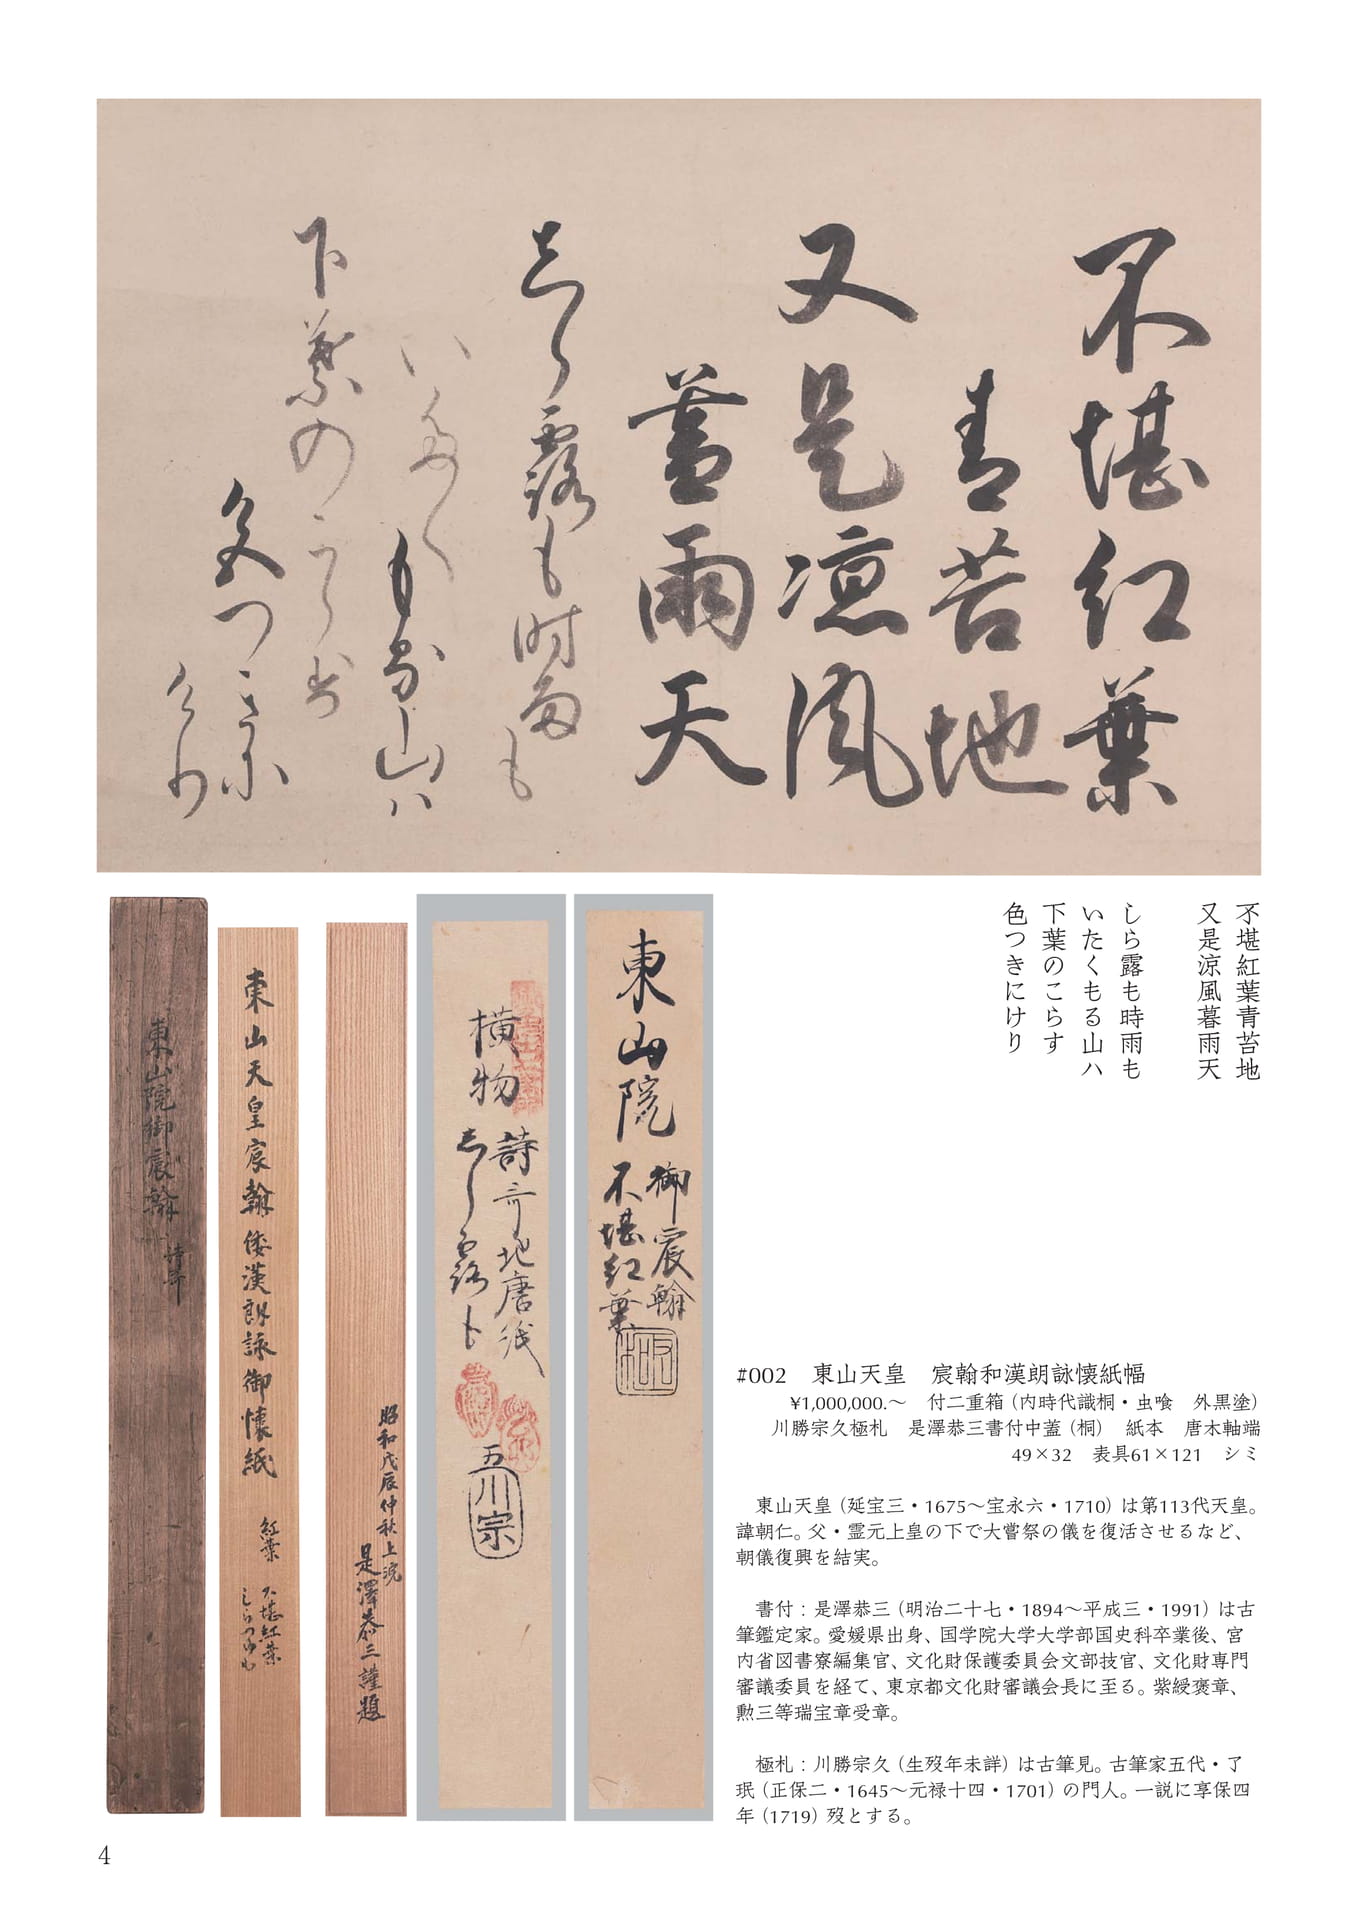 不堪紅葉
青苔地
又是凉風
暮雨天
しら露も時雨も
いたく
もる山ハ
下葉のこらす
色つきに
けり
不堪紅葉青苔地
又是涼風暮雨天
しら露も時雨も
いたくもる山ハ
下葉のこらす
色つきにけり
東山院
御宸翰
不堪紅葉
極
横物
詩哥地唐紙
しら露も
五
川宗
昭和戊辰仲秋上浣
是澤恭三謹題
東山天皇宸翰倭漢朗詠御懐紙
紅葉
不堪紅葉
しらつゆも
東山院御宸翰
詩哥
#002 東山天皇 宸翰和漢朗詠懐紙幅
¥1,000,000.～ 付二重箱（内時代識桐・虫喰 外黒塗）
川勝宗久極札 是澤恭三書付中蓋（桐） 紙本 唐木軸端
49×32 表具61×121 シミ
東山天皇（延宝三・1675～宝永六・1710）は第113代天皇。
諱朝仁。父・霊元上皇の下で大嘗祭の儀を復活させるなど、
朝儀復興を結実。
書付：是澤恭三（明治二十七・1894～平成三・1991）は古
筆鑑定家。愛媛県出身、国学院大学大学部国史科卒業後、宮
内省図書寮編集官、文化財保護委員会文部技官、文化財専門
審議委員を経て、東京都文化財審議会長に至る。紫綬褒章、
勲三等瑞宝章受章。
極札：川勝宗久（生歿年未詳）は古筆見。古筆家五代・了
珉（正保二・1645～元禄十四・1701）の門人。一説に享保四
年（1719）歿とする。
4